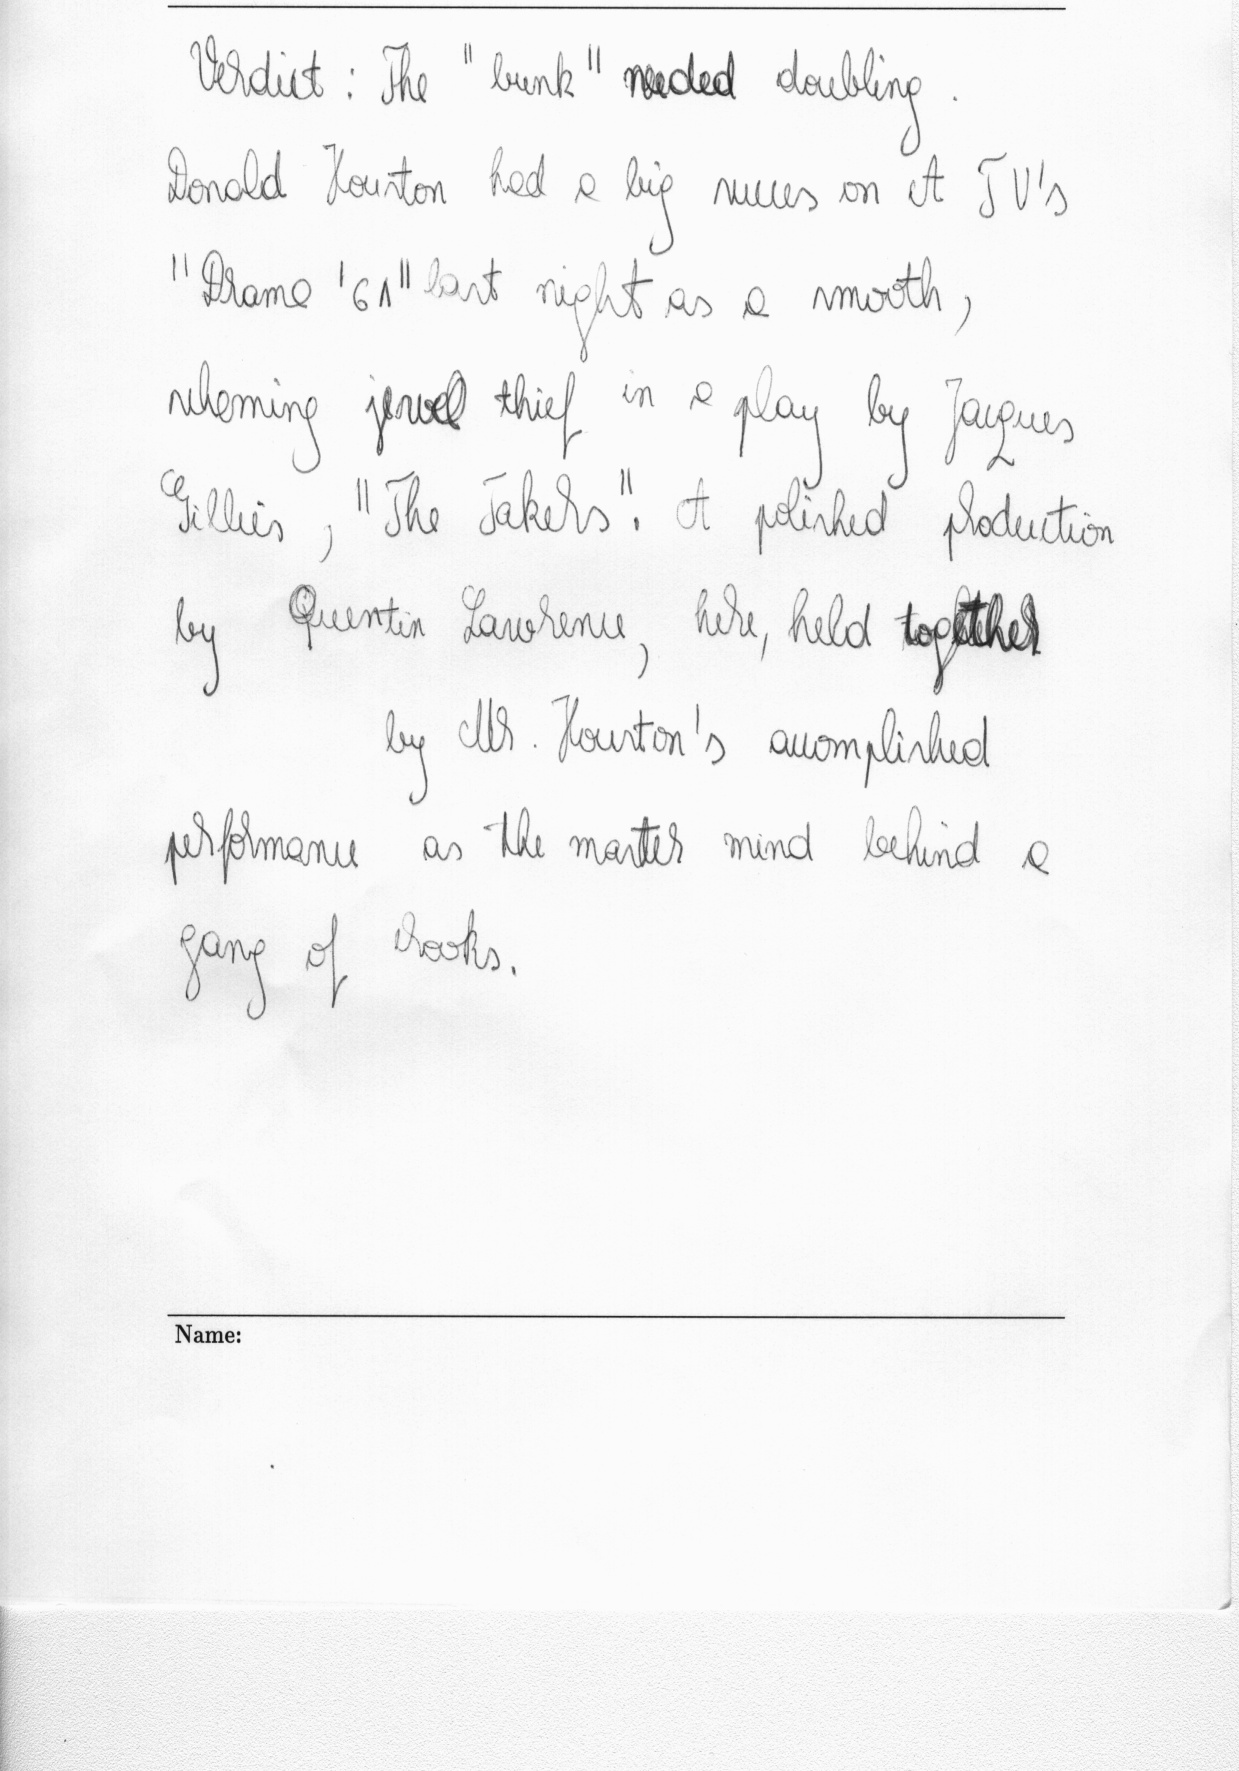 Verdict : The "bunk" needed doubling .
Donald Houston had a big succes on A TV's
"Drama '61" last night as a smooth ,
scheming jewel thief in a play by Jacques
Gillies , "The Takers". A polished production
by Quentin Lawrence , here, held together
by Mr. Houston's accomplished
performance as the master mind behind a
gang of crooks.
Name: